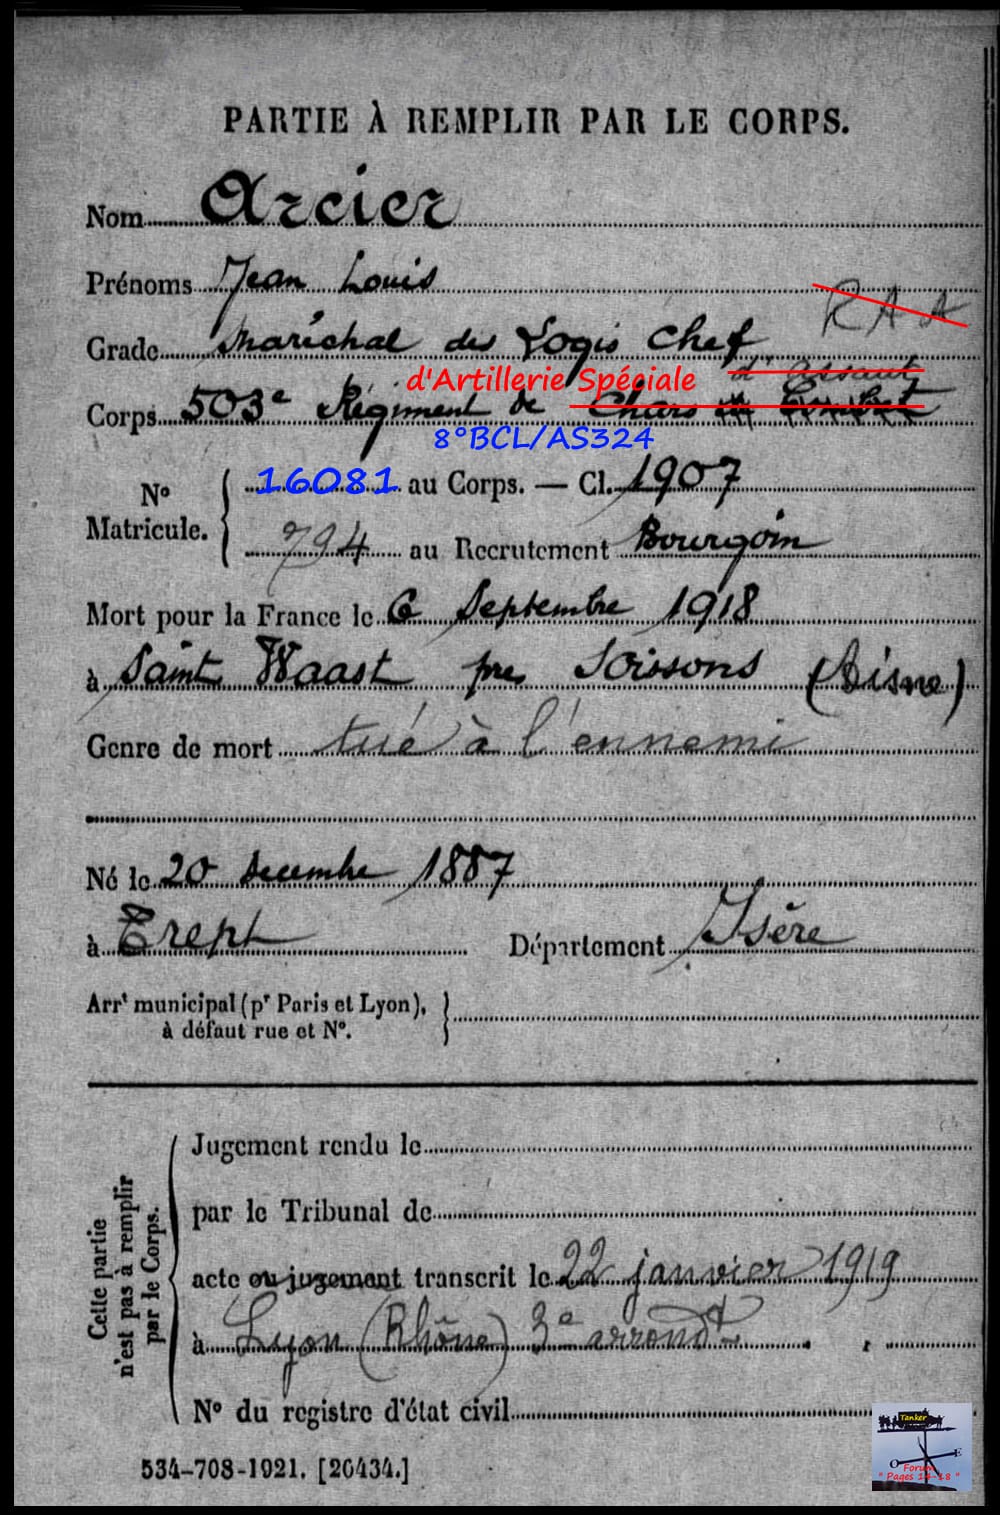 PARTIE À REMPLIR PAR LE CORPS.
Nom Arcier
Prénoms Jean Louis
R A A
Grade Maréchal des Logis Chef
d'assaut
d'Artillerie Spéciale
Corps 503e Régiment de Chars de Combat
8°BCL/AS324
No Matricule. { 16081 au Corps. — Cl. 1907
794 au Recrutement Bourgoin
Mort pour la France le 6 Septembre 1918
à Saint Waast près Soissons (Aisne)
Genre de mort tué à l'ennemi
Né le 20 Decembre 1887
à Trept Département Isère
Arrt municipal (pr Paris et Lyon),
à défaut rue et No.
Cette partie
n'est pas à remplir
par le Corps.
Jugement rendu le
par le Tribunal de
acte ou jugement transcrit le 22 janvier 1919
à Lyon (Rhône) 3e arrondt
No du registre d'état civil
534-708-1921. [26434.]
Tanker
O E
Forum
" Pages 14-18 "